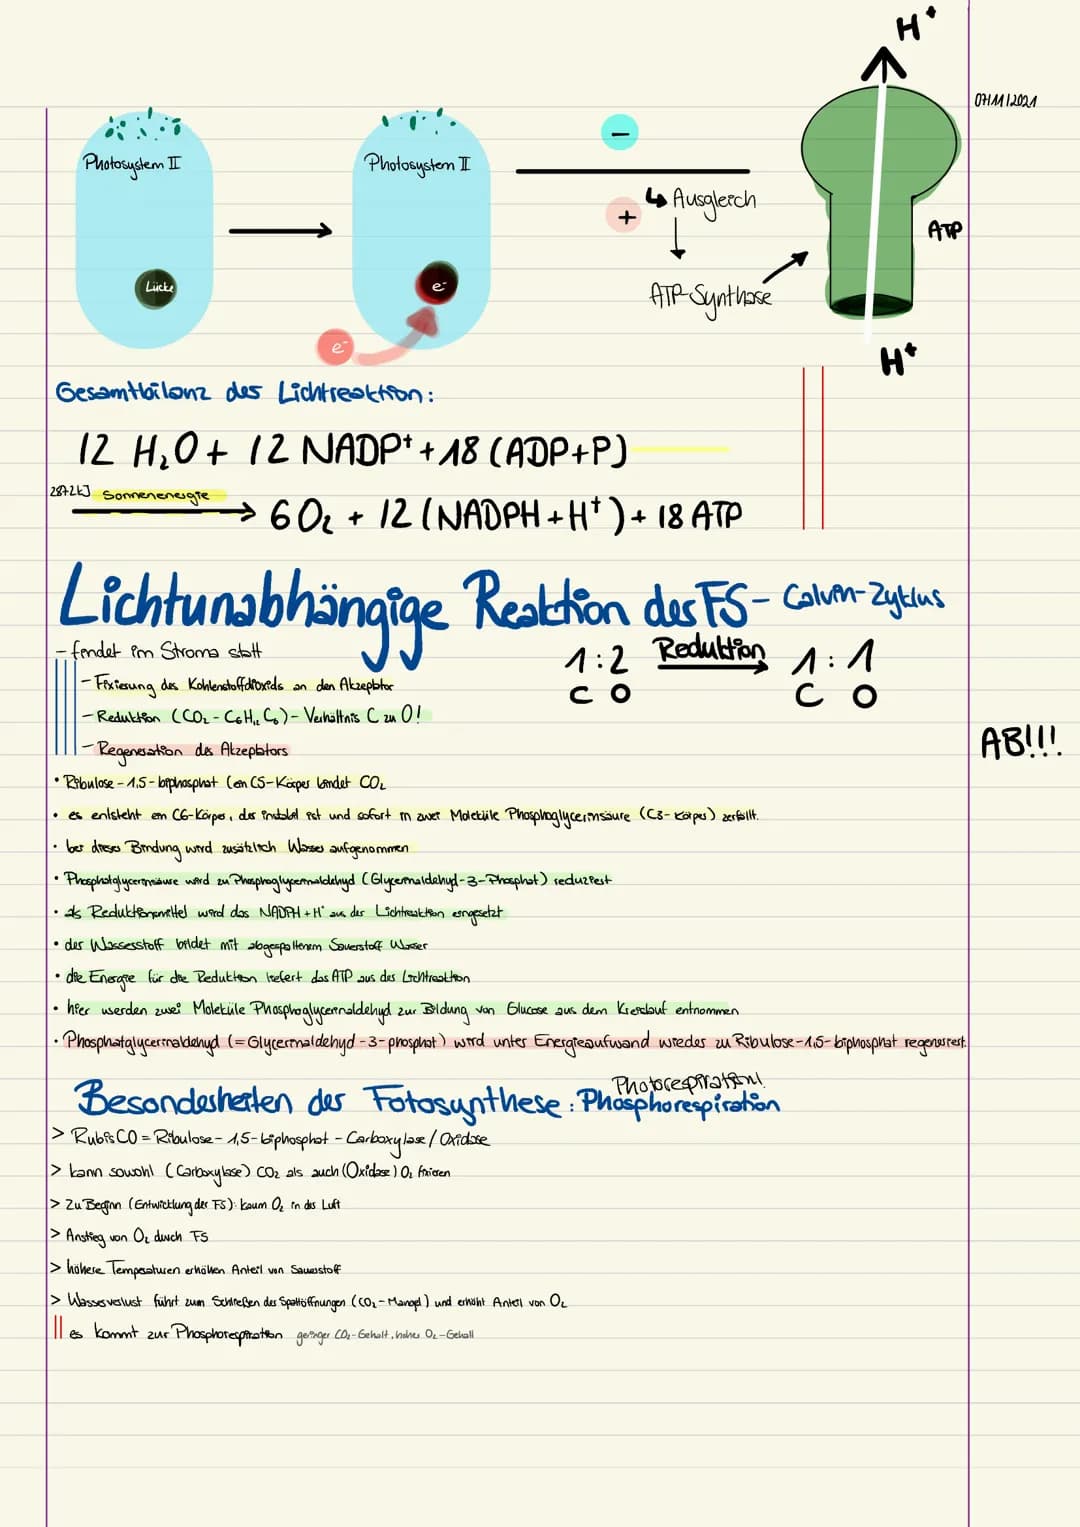 H⁺
07/11/2021
Photosystem II
Photosystem II
−
+
↳ Ausgleich
ATP
Lücke
e⁻
ATP-Synthase
e⁻
H⁺
Gesamtbilanz der Lichtreaktion:
12 H₂O + 12 NADP⁺ + 18 (ADP+P)
2872kJ Sonnenenergie
→ 6 O₂ + 12 (NADPH + H⁺) + 18 ATP
Lichtunabhängige Reaktion der FS - Calvin-Zyklus
- findet im Stroma statt
1:2 Reduktion 1:1
C O C O
- Fixierung des Kohlenstoffdioxids an den Akzeptor
- Reduktion (CO₂ - C₆H₁₂C₆) - Verhältnis C zu O!
- Regeneration des Akzeptors
AB!!!
• Ribulose-1,5-biphosphat (ein C5-Körper bindet CO₂
• es entsteht ein C6-Körper, der instabil ist und sofort in zwei Moleküle Phosphoglycerinsäure (C3-Körper) zerfällt.
• bei dieser Bindung wird zusätzlich Wasser aufgenommen
• Phosphatglycerinsäure wird zu Phosphoglycerinaldehyd (Glycerinaldehyd-3-Phosphat) reduziert
• als Reduktionsmittel wird das NADPH + H⁺ aus der Lichtreaktion eingesetzt
• der Wasserstoff bildet mit abgespaltenem Sauerstoff Wasser
• die Energie für die Reduktion liefert das ATP aus der Lichtreaktion
• hier werden zwei Moleküle Phosphoglycerinaldehyd zur Bildung von Glucose aus dem Kreislauf entnommen
• Phosphatglycerinaldehyd (= Glycerinaldehyd-3-phosphat) wird unter Energieaufwand wieder zu Ribulose-1,5-biphosphat regeneriert.
Photorespiration!
Besonderheiten der Fotosynthese: Phosphorespiration
> RubisCO = Ribulose-1,5-biphosphat-Carboxylase/Oxidase
> kann sowohl (Carboxylase) CO₂ als auch (Oxidase) O₂ fixieren
> Zu Beginn (Entwicklung der FS): kaum O₂ in der Luft
> Anstieg von O₂ durch FS
> höhere Temperaturen erhöhen Anteil von Sauerstoff
> Wasserverlust führt zum Schließen der Spaltöffnungen (CO₂-Mangel) und erhöht Anteil von O₂
es kommt zur Phosphorespiration geringer CO₂-Gehalt, hoher O₂-Gehalt